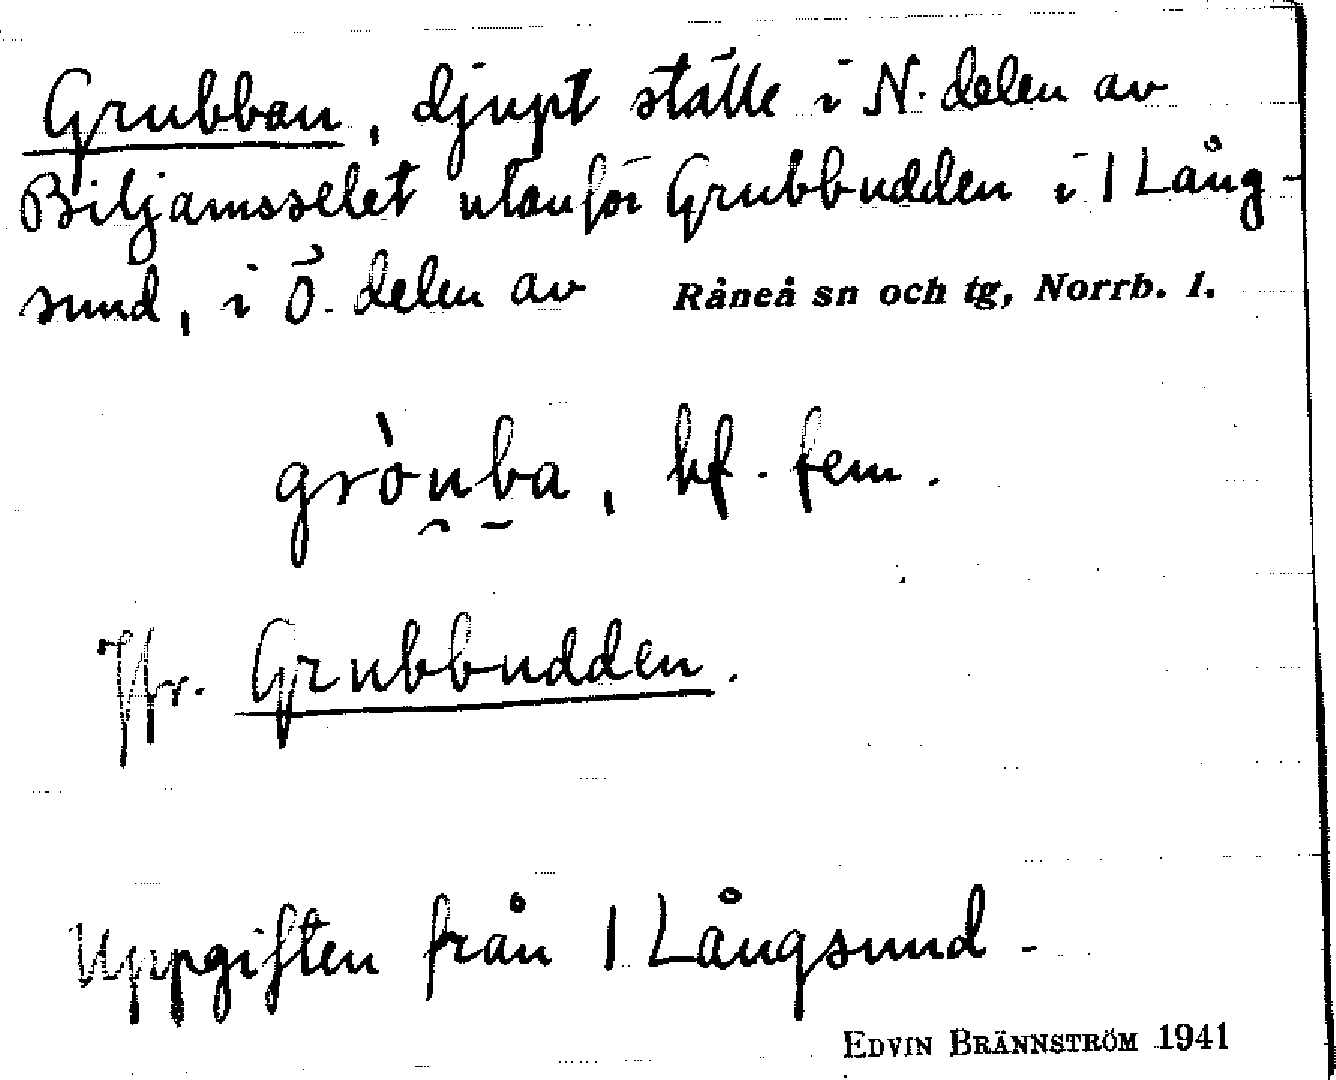 Grubban, djupt ställe i N. delen av
Biljamsselet utanför Grubbudden i 1 Lång-
sund, i Ö. delen av Råneå sn och tg, Norrb. l.
gròu̯ba, bf. fem.
Jfr. Grubbudden.
Uppgiften från 1 Långsund.
EDVIN BRÄNNSTRÖM 1941